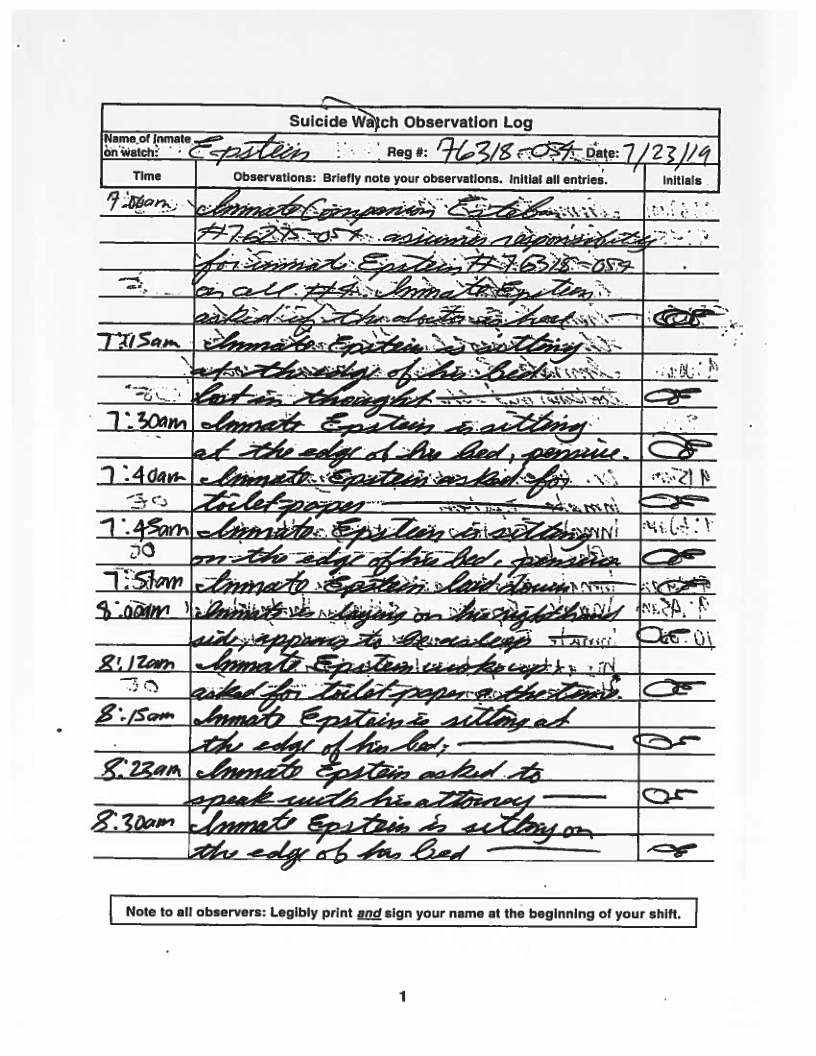 Suicide Watch Observation Log
Name of Inmate on watch: Epstein Reg #: 76318-054 Date: 7/23/19
Time Observations: Briefly note your observations. Initial all entries. Initials
7:00am Inmate Companion Esteban
#76275-054 assumes responsibility
for inmate Epstein #76318-054
on cell #4. Inmate Epstein
asked if the doctor is here
7:15am Inmate Epstein is sitting
at the edge of his Bed
lost in thought
7:30am Inmate Epstein is sitting
at the edge of his bed, pensive.
7:40am Inmate Epstein asked for
toilet paper
7:45am Inmate Epstein is sitting
on the edge of his Bed, pensive
7:57am Inmate Epstein laid down
8:00am Inmate is laying on his right hand
side, appears to be asleep
8:12am Inmate Epstein woke up
asked for toilet paper the time.
8:15am Inmate Epstein is sitting at
the edge of his bed;
8:23am Inmate Epstein asked to
speak with his attorney
8:30am Inmate Epstein is sitting on
the edge of his Bed
Note to all observers: Legibly print and sign your name at the beginning of your shift.
1